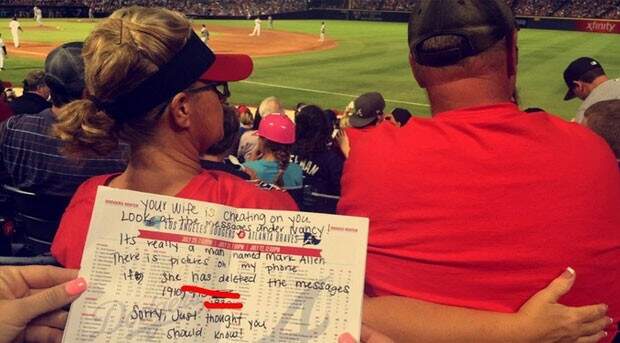 xfinity
Your wife is cheating on you
Look at the messages under Nancy!
LOS ANGELES DODGERS @ ATLANTA BRAVES
Its really a man named Mark Allen
There is pictures on my phone
if she has deleted the messages
Sorry, Just thought you
should know!